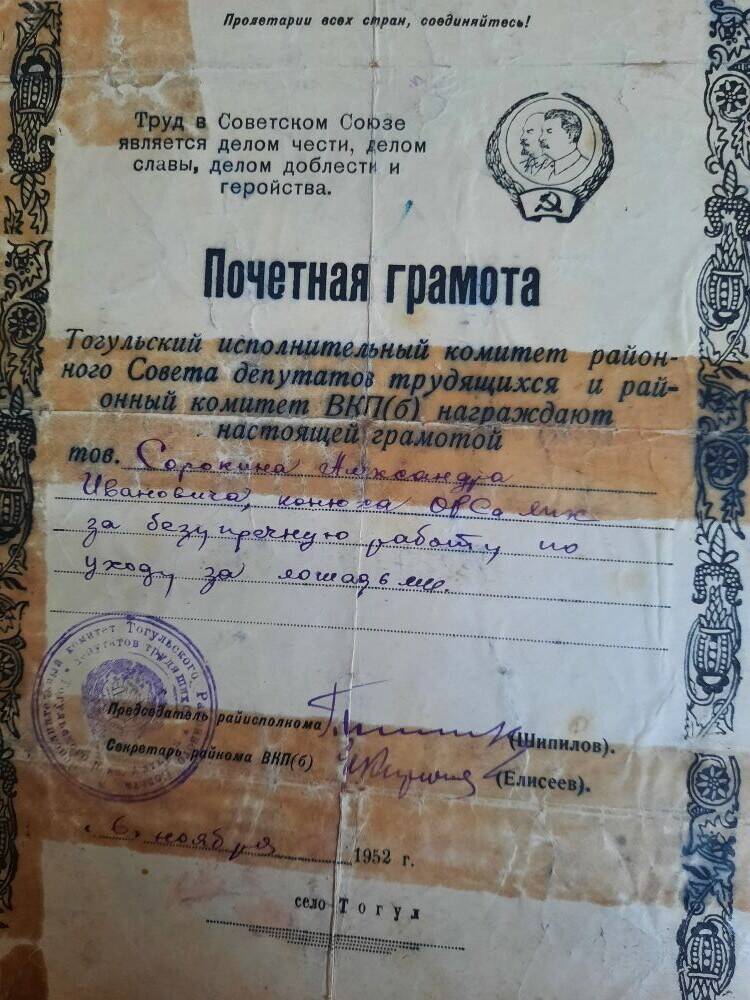 Пролетарии всех стран, соединяйтесь!
Труд в Советском Союзе
является делом чести, делом
славы, делом доблести и
геройства.
Почетная грамота
Тогульский исполнительный комитет район-
ного Совета депутатов трудящихся и рай-
онный комитет ВКП(б) награждают
настоящей грамотой
тов. Сорокина Александра
Ивановича, конюха ОРСа
за безупречную работу по
уходу за лошадьми.
комитет Тогульского
депутатов трудящихся
Председатель райисполкома (Шипилов).
Секретарь райкома ВКП(б) (Елисеев).
"6" ноября 1952 г.
село Тогул